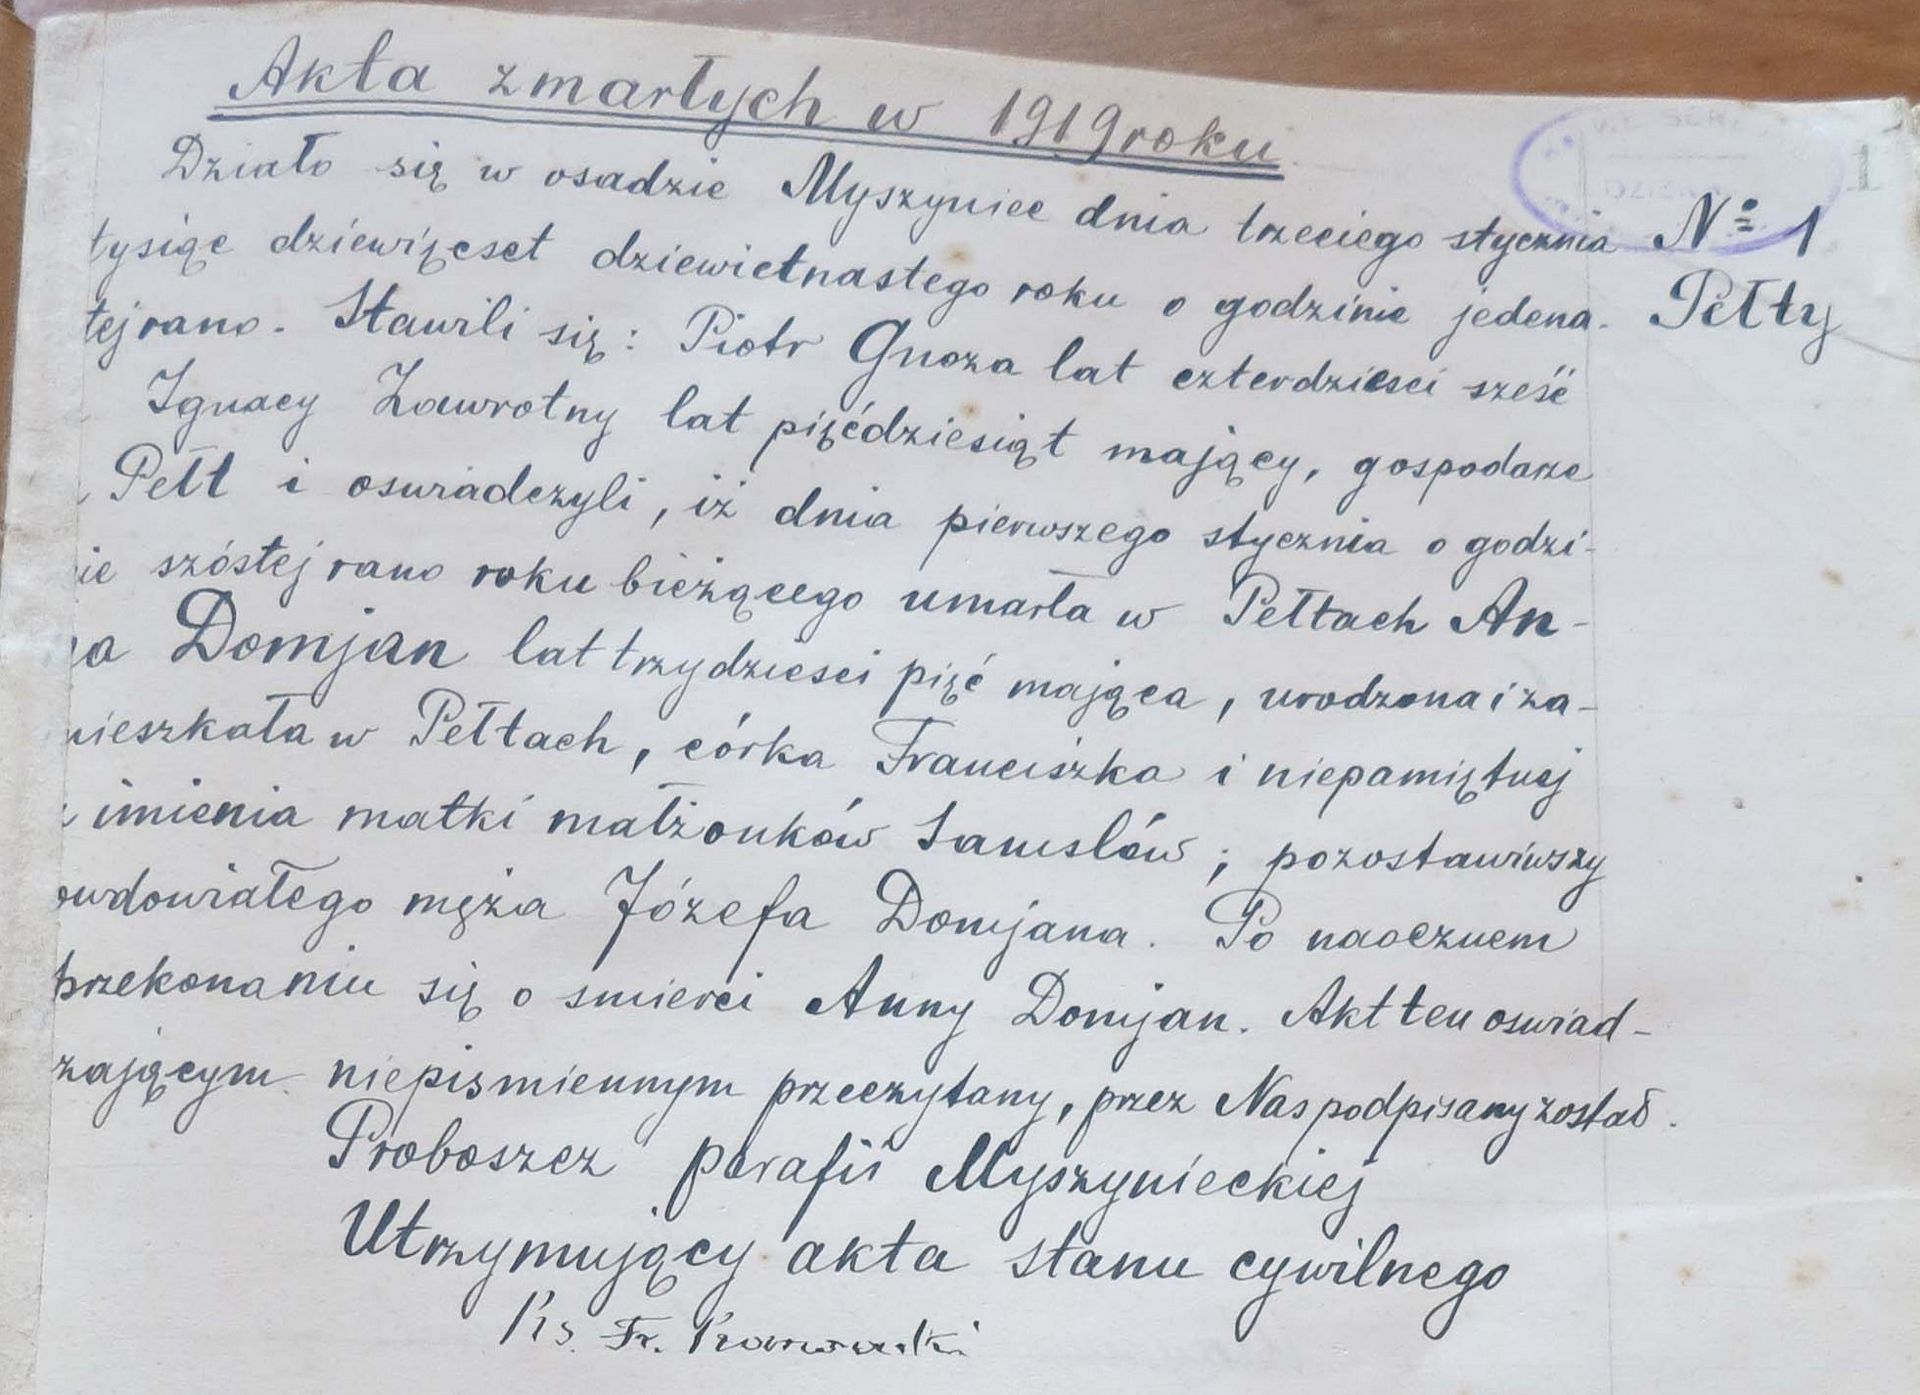 Akta zmarłych w 1919 roku
Działo się w osadzie Myszyniec dnia trzeciego stycznia
№ 1
tysiąc dziewięcset dziewietnastego roku o godzinie jedena-
Pełty
tej rano. Stawili się: Piotr Gnoza lat czterdziesci sześć
Ignacy Zawrotny lat pięćdziesiąt mający, gospodarze
Pełt i oswiadczyli, iż dnia pierwszego stycznia o godzi-
ie szóstej rano roku bieżącego umarła w Pełtach An-
na Domjan lat trzydziesci pięć mająca, urodzona i za-
mieszkała w Pełtach, córka Franciszka i niepamiętnej
imienia matki małżonków; pozostawiwszy
owdowiałego męża Józefa Domjana. Po naocznem
przekonaniu się o smierci Anny Domjan. Akt ten oswiad-
zającym niepismiennym przeczytany, przez Nas podpisany został.
Proboszcz parafii Myszynieckiej
Utrzymujący akta stanu cywilnego
Ks. Fr.
1